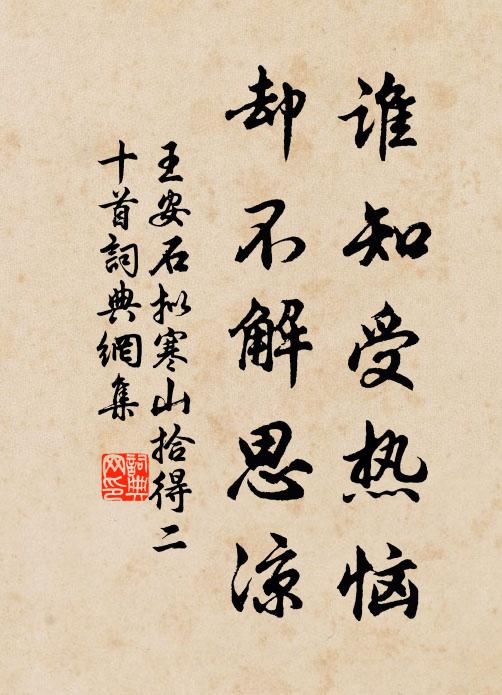 谁知受热恼
却不解思凉
王安石拟寒山拾得二
十首詞典網集
詞典
网印